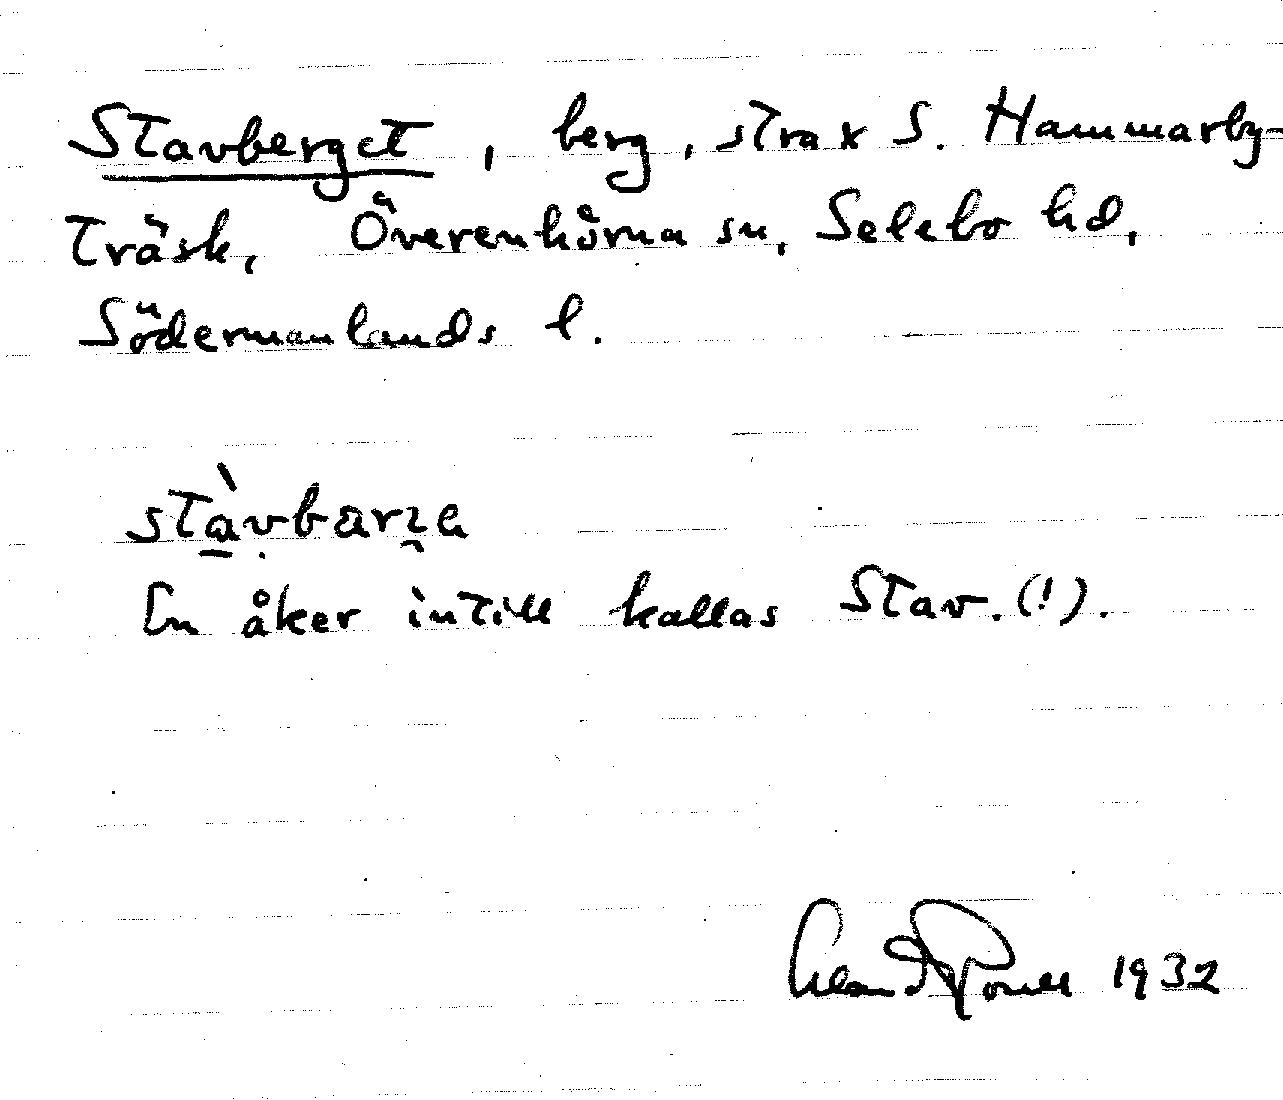 Stavberget, berg, strax S. Hammarby-
träsk, Överenhörna sn, Selebo hd,
Södermanlands l.
stàvbarɿa
En åker intill kallas Stav.(!).
1932